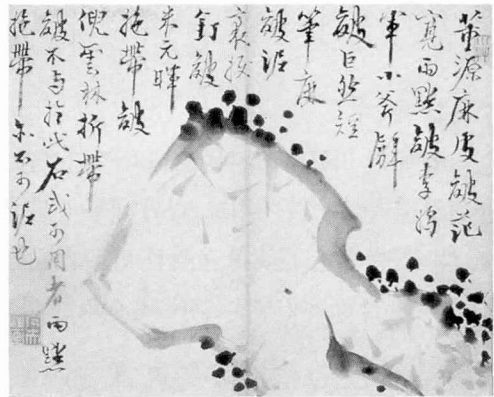 董源麻皮皴范
寬雨點皴李將
軍小斧劈
皴巨然短
筆麻
皴泥
裏拔
釘皴
米元暉
拖帶皴
倪雲林折帶
皴不与於此石或可用者雨點
拖帶亦不可泥也